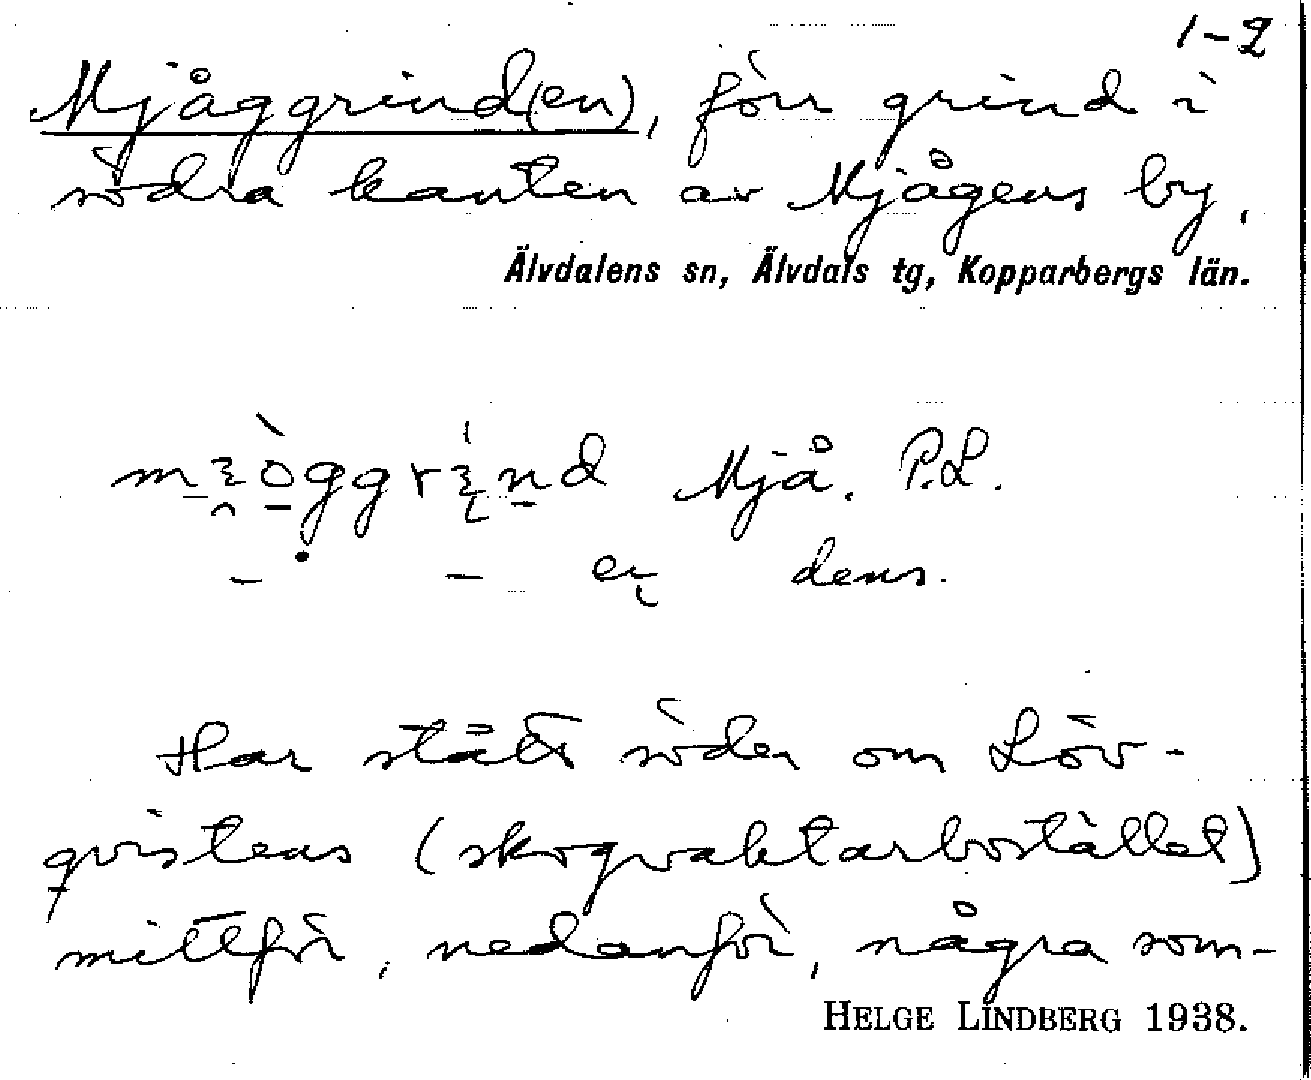 1-2
Mjåggrind(en), förr grind i
södra kanten av Mjågens by,
Älvdalens sn, Älvdals tg, Kopparbergs län.
Mjå. P.L.
dens.
Har stått söder om Löv-
qvistens (skogvaktarbostället)
mittför, nedanför, några som-
HELGE LINDBERG 1938.